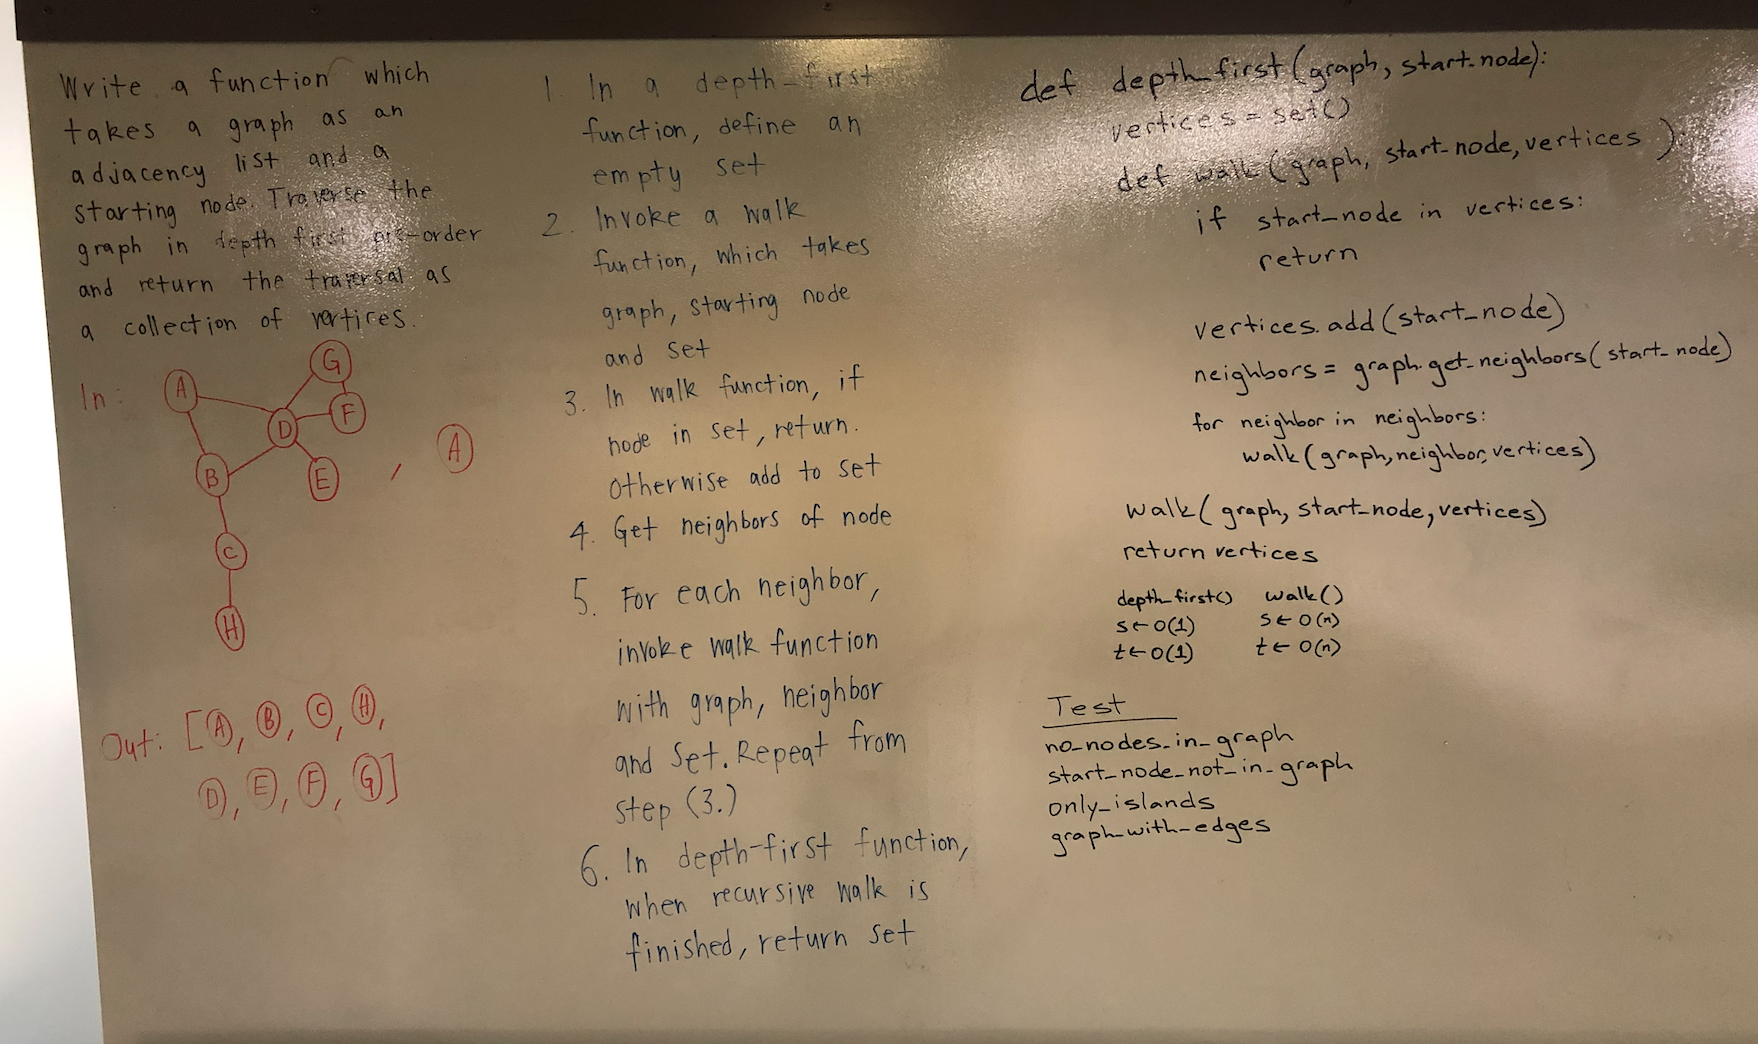 Write a function which
takes a graph as an
adjacency list and a
starting node. Traverse the
graph in depth first pre-order
and return the traversal as
a collection of vertices.
In:
A
G
D
F
B
E
, A
C
H
Out: [A, B, C, H,
D, E, F, G]
1. In a depth-first
function, define an
empty set
2. Invoke a walk
function, which takes
graph, starting node
and set
3. In walk function, if
node in set, return.
otherwise add to set
4. Get neighbors of node
5. For each neighbor,
invoke walk function
with graph, neighbor
and set. Repeat from
step (3.)
6. In depth-first function,
when recursive walk is
finished, return set
def depth_first(graph, start_node):
vertices = set()
def walk(graph, start_node, vertices):
if start_node in vertices:
return
vertices.add(start_node)
neighbors = graph.get_neighbors(start_node)
for neighbor in neighbors:
walk(graph, neighbor, vertices)
walk(graph, start_node, vertices)
return vertices
depth_first() walk()
s ← O(1) s ← O(n)
t ← O(1) t ← O(n)
Test
no_nodes_in_graph
start_node_not_in_graph
only_islands
graph_with_edges